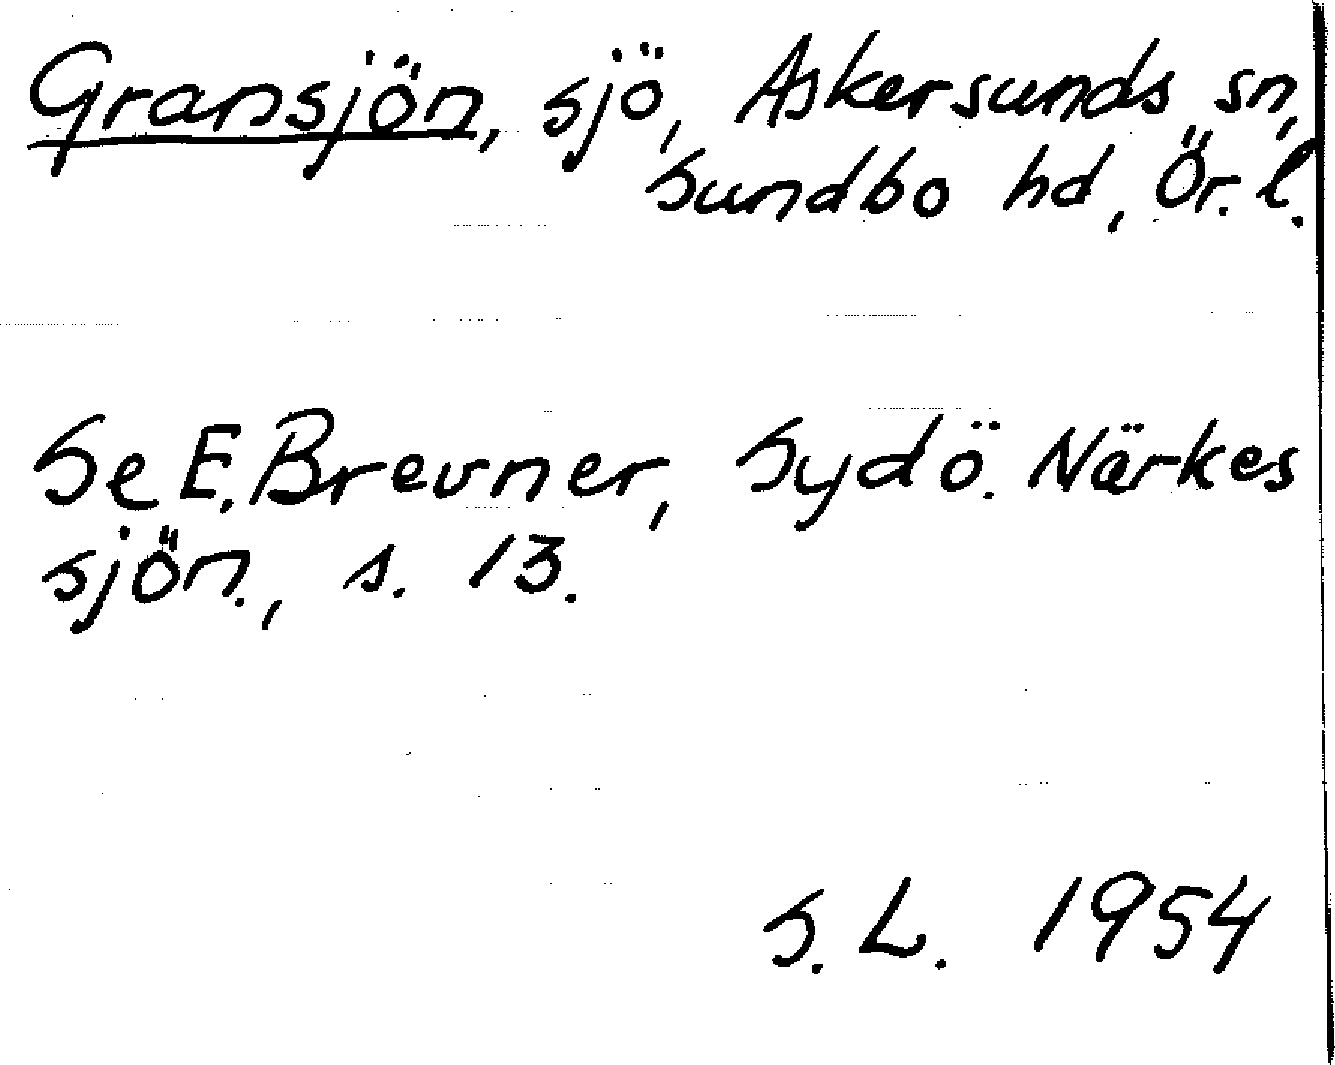 Gransjön, sjö, Askersunds sn,
Sundbo hd, Ör. l.
Se E. Brevner, Sydö. Närkes
sjön., s. 13.
S. L. 1954